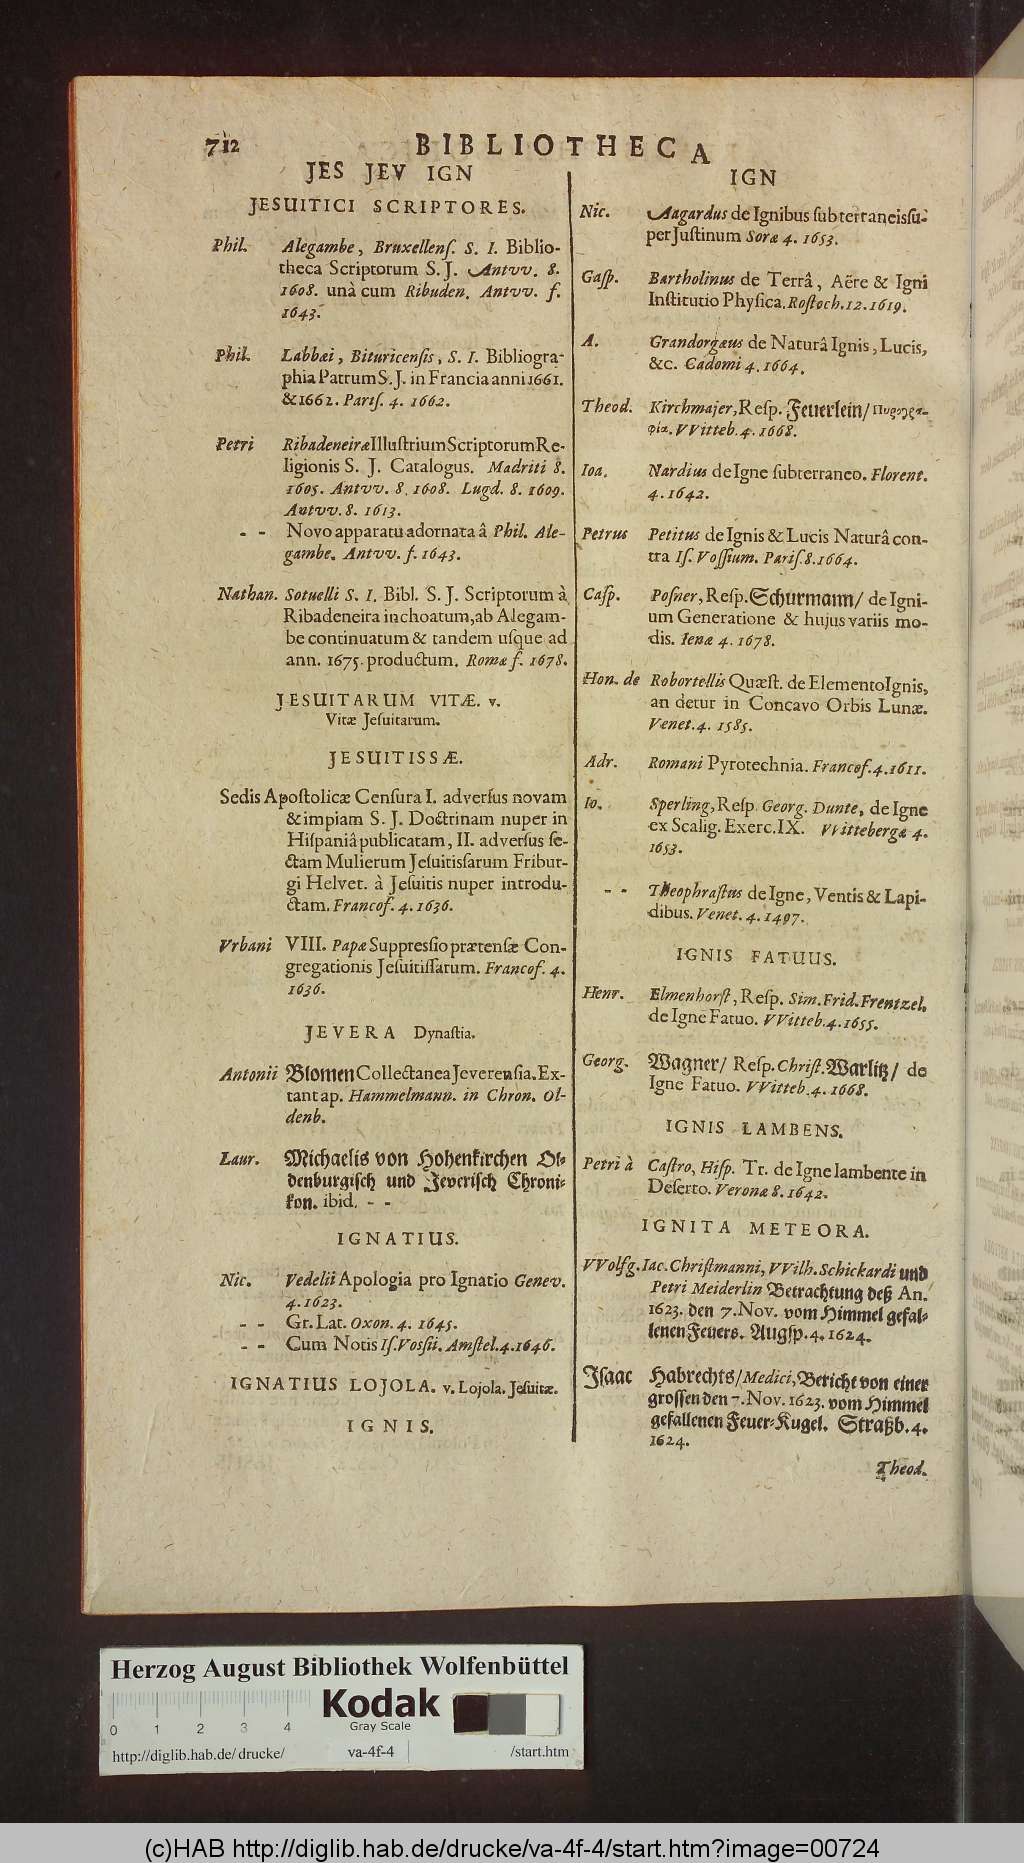 712 BIBLIOTHECA
JES JEV IGN
JESUITICI SCRIPTORES.
Phil. Alegambe, Bruxellenſ. S. I. Biblio-
theca Scriptorum S. J. Antvv. 8.
1608. unà cum Ribuden. Antvv. f.
1643.
Phil. Labbæi, Bituricenſis, S. I. Bibliogra-
phia Patrum S. J. in Francia anni 1661.
& 1662. Pariſ. 4. 1662.
Petri Ribadeneiræ Illuſtrium Scriptorum Re-
ligionis S. J. Catalogus. Madriti 8.
1605. Antvv. 8. 1608. Lugd. 8. 1609.
Antvv. 8. 1613.
- - Novo apparatu adornata â Phil. Ale-
gambe. Antvv. f. 1643.
Nathan. Sotuelli S. I. Bibl. S. J. Scriptorum à
Ribadeneira inchoatum, ab Alegam-
be continuatum & tandem uſque ad
ann. 1675. productum. Romæ f. 1678.
JESUITARUM VITÆ. v.
Vitæ Jeſuitarum.
JESUITISSÆ.
Sedis Apoſtolicæ Cenſura I. adverſus novam
& impiam S. J. Doctrinam nuper in
Hiſpaniâ publicatam, II. adverſus ſe-
ctam Mulierum Jeſuitiſſarum Fribur-
gi Helvet. à Jeſuitis nuper introdu-
ctam. Francof. 4. 1636.
Vrbani VIII. Papæ Suppresſio prætenſæ Con-
gregationis Jeſuitiſſarum. Francof. 4.
1636.
JEVERA Dynaſtia.
Antonii Blomen Collectanea Jeverenſia. Ex-
tant ap. Hammelmann. in Chron. Ol-
denb.
Laur. Michaelis von Hohenkirchen Ol-
denburgiſch und Jeveriſch Chroni-
kon. ibid. - -
IGNATIUS.
Nic. Vedelii Apologia pro Ignatio Genev.
4. 1623.
- - Gr. Lat. Oxon. 4. 1645.
- - Cum Notis Iſ. Vosſii. Amſtel. 4. 1646.
IGNATIUS LOJOLA. v. Lojola. Jeſuitæ.
IGNIS.
IGN
Nic. Aagardus de Ignibus ſubterraneis ſu-
per Juſtinum Soræ 4. 1653.
Gaſp. Bartholinus de Terrâ, Aëre & Igni
Inſtitutio Phyſica. Roſtoch. 12. 1619.
A. Grandorgæus de Naturâ Ignis, Lucis,
&c. Cadomi 4. 1664.
Theod. Kirchmajer, Reſp. Feuerlein/ Πυρογρα-
φία. VVitteb. 4. 1668.
Ioa. Nardius de Igne ſubterraneo. Florent.
4. 1642.
Petrus Petitus de Ignis & Lucis Naturâ con-
tra Iſ. Voſſium. Pariſ. 8. 1664.
Caſp. Poſner, Reſp. Schurmann/ de Igni-
um Generatione & hujus variis mo-
dis. Ienæ 4. 1678.
Hon. de Robortellis Quæſt. de Elemento Ignis,
an detur in Concavo Orbis Lunæ.
Venet. 4. 1585.
Adr. Romani Pyrotechnia. Francof. 4. 1611.
Io. Sperling, Reſp. Georg. Dunte, de Igne
ex Scalig. Exerc. IX. VVittebergæ 4.
1653.
- - Theophraſtus de Igne, Ventis & Lapi-
dibus. Venet. 4. 1497.
IGNIS FATUUS.
Henr. Elmenhorſt, Reſp. Sim. Frid. Frentzel.
de Igne Fatuo. VVitteb. 4. 1655.
Georg. Wagner/ Reſp. Chriſt. Warlitz/ de
Igne Fatuo. VVitteb. 4. 1668.
IGNIS LAMBENS.
Petri à Caſtro, Hiſp. Tr. de Igne lambente in
Deſerto. Veronæ 8. 1642.
IGNITA METEORA.
VVolfg. Iac. Chriſtmanni, VVilh. Schickardi und
Petri Meiderlin Betrachtung deß An.
1623. den 7. Nov. vom Himmel gefal-
lenen Feuers. Augſp. 4. 1624.
Iſaac Habrechts/ Medici, Bericht von einer
groſſen den 7. Nov. 1623. vom Himmel
gefallenen Feuer-Kugel. Straßb. 4.
1624.
Theod.
Herzog August Bibliothek Wolfenbüttel
Kodak
Gray Scale
0 1 2 3 4
http://diglib.hab.de/drucke/ va-4f-4 /start.htm
(c)HAB http://diglib.hab.de/drucke/va-4f-4/start.htm?image=00724